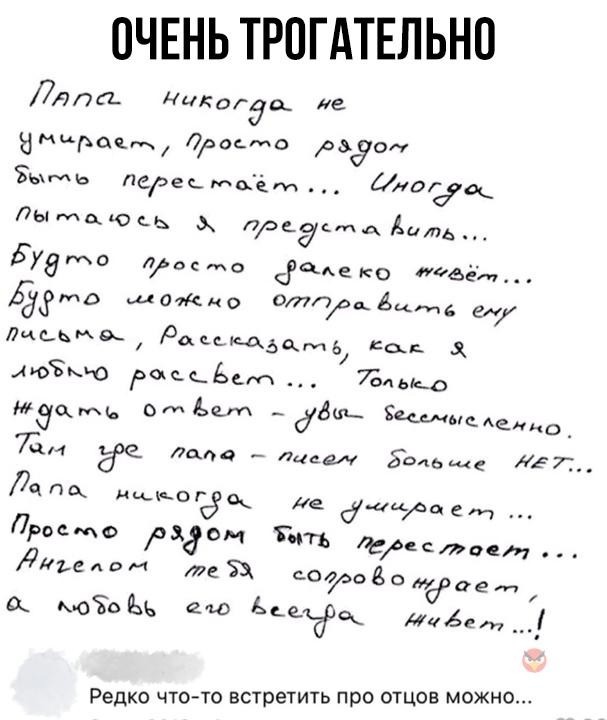 ОЧЕНЬ ТРОГАТЕЛЬНО
Папа никогда не
умирает, Просто рядом
быть перестаёт... Иногда
Пытаюсь я представить...
Будто просто далеко живёт...
Будто можно отправить ему
письма, Рассказать, как я
люблю рассвет... Только
ждать ответ - увы бессмысленно.
Там где папа - писем больше НЕТ...
Папа никогда не умирает...
Просто рядом быть перестает...
Ангелом тебя сопровождает,
а любовь его всегда живет...!
Редко что-то встретить про отцов можно...